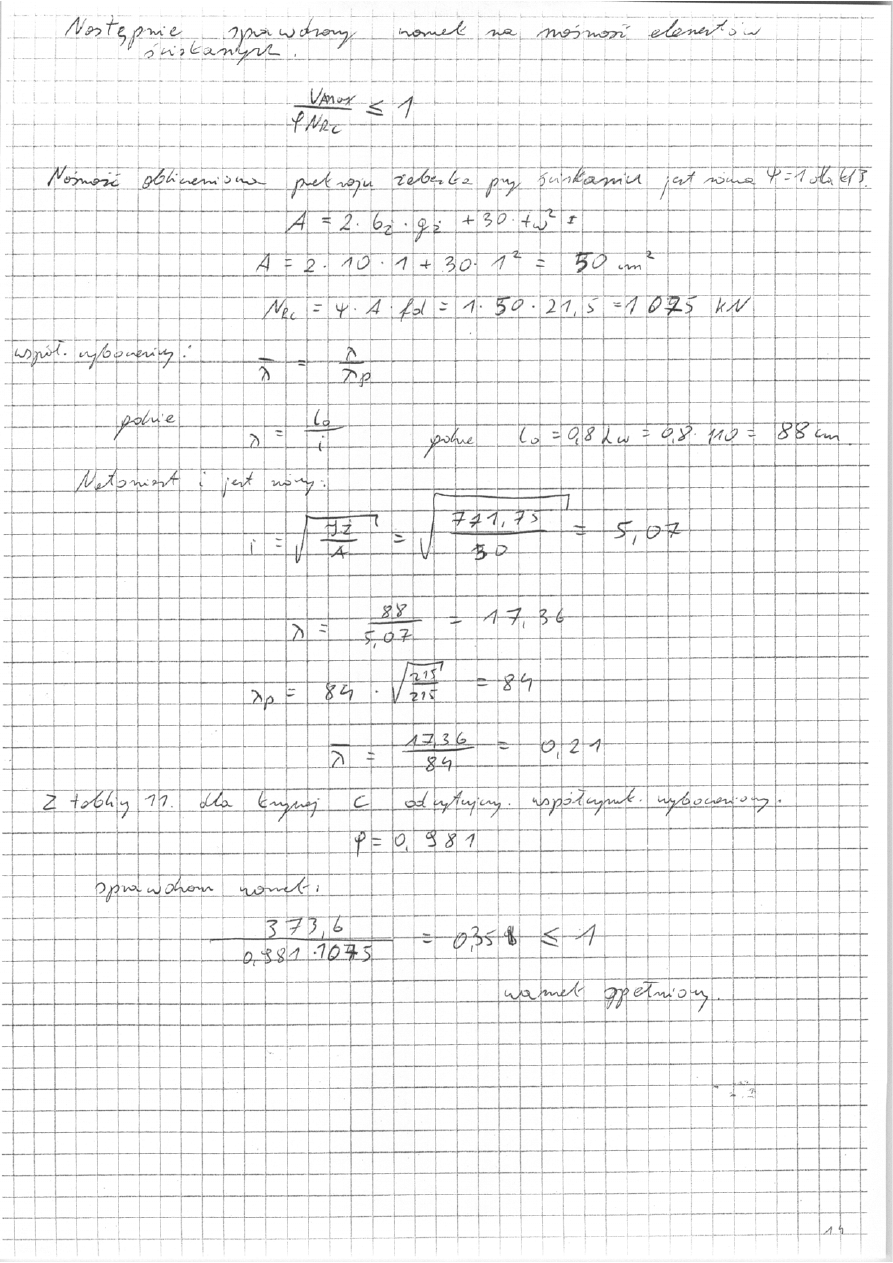 Następnie sprawdzamy warunek na nośność elementów
ściskanych.
Vmax / φ NRc ≤ 1
Nośność obliczeniowa przekroju żeberka przy ściskaniu jest równa Ψ = 1 dla kl3.
A = 2 · bż · gż + 30 · tw² =
A = 2 · 10 · 1 + 30 · 1² = 50 cm²
NRc = Ψ · A · fd = 1 · 50 · 21,5 = 1075 kN
współ. wyboczeniowy:
λ̄ = λ / λp
gdzie λ = lo / i gdzie lo = 0,8 hw = 0,8 · 110 = 88 cm.
Natomiast i jest równy:
i = √(Jż / A) = √(771,75 / 50) = 5,07
λ = 88 / 5,07 = 17,36
λp = 84 · √(215 / 215) = 84
λ̄ = 17,36 / 84 = 0,21
Z tablicy 11. dla krzywej C odczytujemy współczynnik wyboczeniowy.
φ = 0,981
sprawdzam warunek:
373,6 / 0,981 · 1075 = 0,35 ≤ 1
warunek spełniony.
14